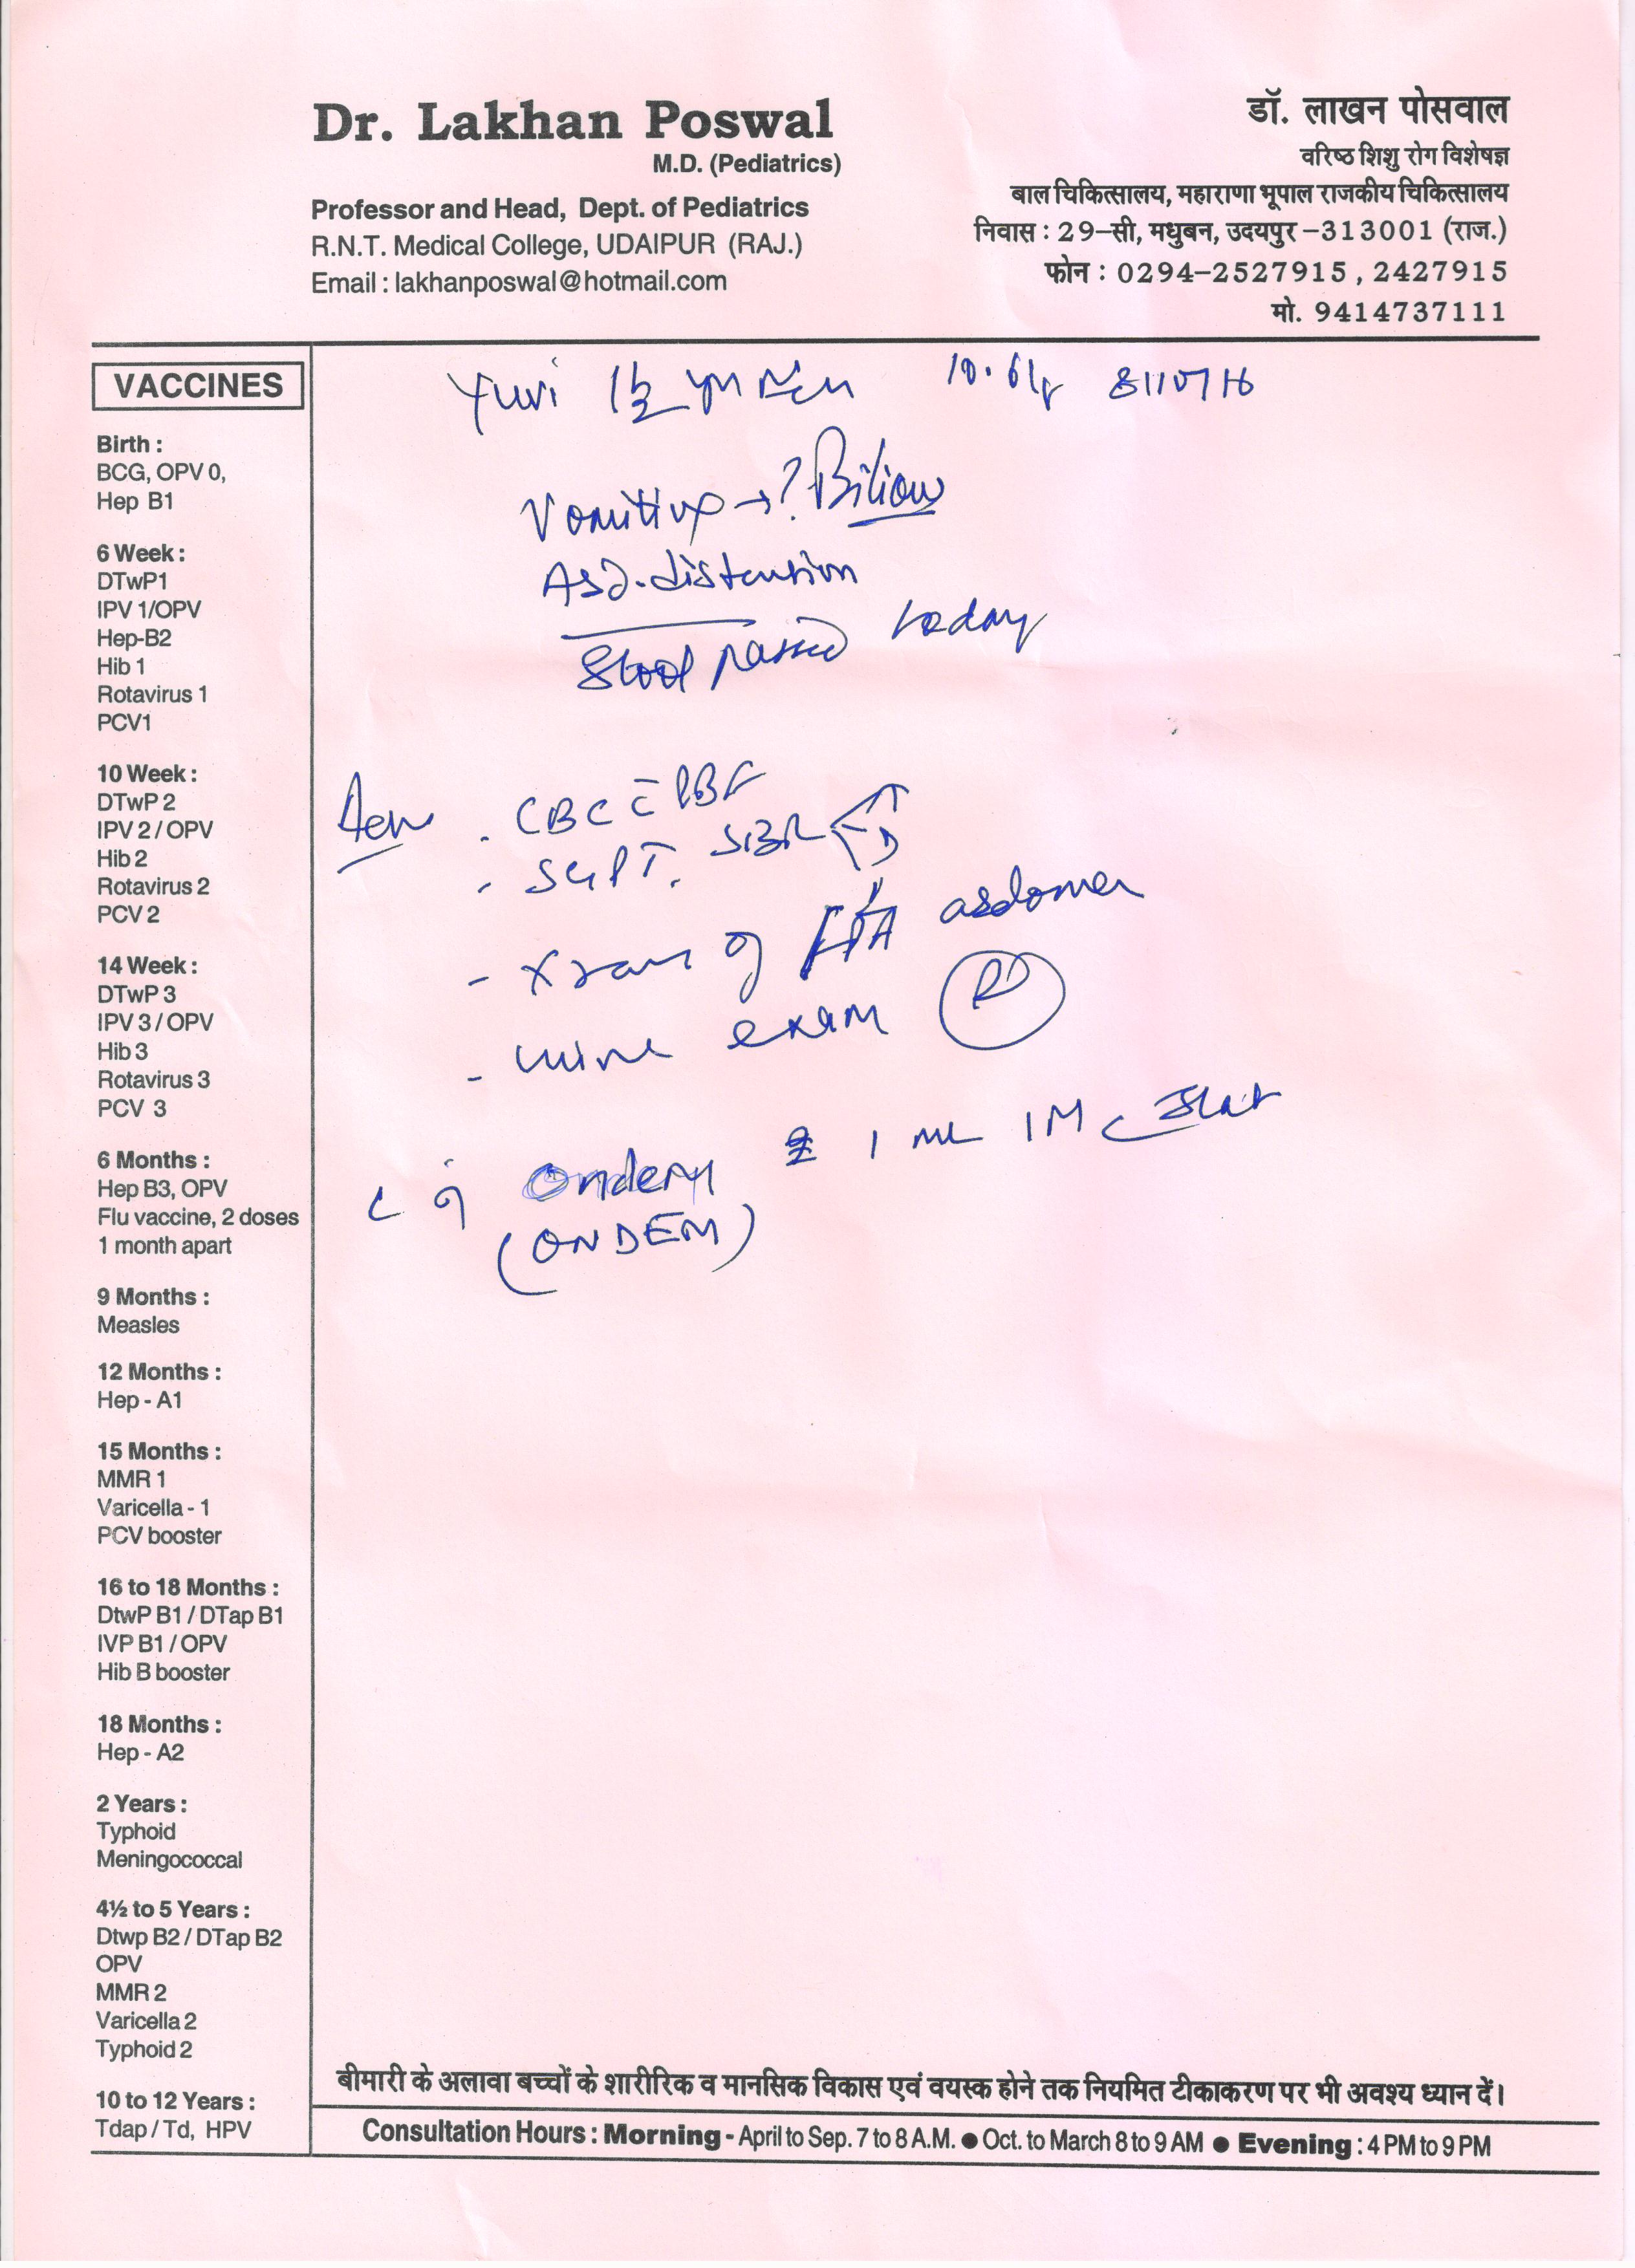 Dr. Lakhan Poswal
M.D. (Pediatrics)
Professor and Head, Dept. of Pediatrics
R.N.T. Medical College, UDAIPUR (RAJ.)
Email : lakhanposwal@hotmail.com
डॉ. लाखन पोसवाल
वरिष्ठ शिशु रोग विशेषज्ञ
बाल चिकित्सालय, महाराणा भूपाल राजकीय चिकित्सालय
निवास : 29-सी, मधुबन, उदयपुर-313001 (राज.)
फोन : 0294-2527915, 2427915
मो. 9414737111
VACCINES
Birth :
BCG, OPV 0,
Hep B1
6 Week :
DTwP1
IPV 1/OPV
Hep-B2
Hib 1
Rotavirus 1
PCV1
10 Week :
DTwP 2
IPV 2 / OPV
Hib 2
Rotavirus 2
PCV 2
14 Week :
DTwP 3
IPV 3 / OPV
Hib 3
Rotavirus 3
PCV 3
6 Months :
Hep B3, OPV
Flu vaccine, 2 doses
1 month apart
9 Months :
Measles
12 Months :
Hep - A1
15 Months :
MMR 1
Varicella - 1
PCV booster
16 to 18 Months :
DtwP B1 / DTap B1
IVP B1 / OPV
Hib B booster
18 Months :
Hep - A2
2 Years :
Typhoid
Meningococcal
4½ to 5 Years :
Dtwp B2 / DTap B2
OPV
MMR 2
Varicella 2
Typhoid 2
10 to 12 Years :
Tdap / Td, HPV
Yuvi 1½
Vomiting → ? Bilious
Abd. distension
Stool passed today
Adv . CBC c̄ PBF
- SGPT, SBR
- X ray of abdomen
- urine exam
Ondem 1 ml IM c Stat
(ONDEM)
बीमारी के अलावा बच्चों के शारीरिक व मानसिक विकास एवं वयस्क होने तक नियमित टीकाकरण पर भी अवश्य ध्यान दें।
Consultation Hours : Morning - April to Sep. 7 to 8 A.M. ● Oct. to March 8 to 9 AM ● Evening : 4 PM to 9 PM